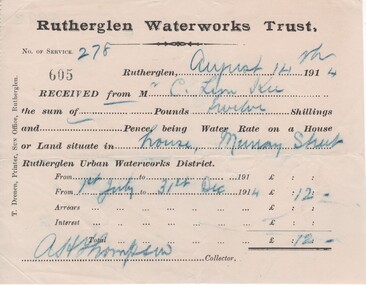 Rutherglen Waterworks Trust,
No. of Service. 278
605
Rutherglen, August 14th 1914
Received from Mr C. Lim Kee
the sum of Pounds twelve Shillings
and Pence, being Water Rate on a House
or Land situate in house, Murray Street
Rutherglen Urban Waterworks District.
From 191 £ : :
From 1st July to 31st Dec 1914 £ : 12 : -
Arrears £ : :
Interest £ : :
Total £ : 12 : -
A H Thompson Collector.
T. Drenen, Printer, Sun Office, Rutherglen.